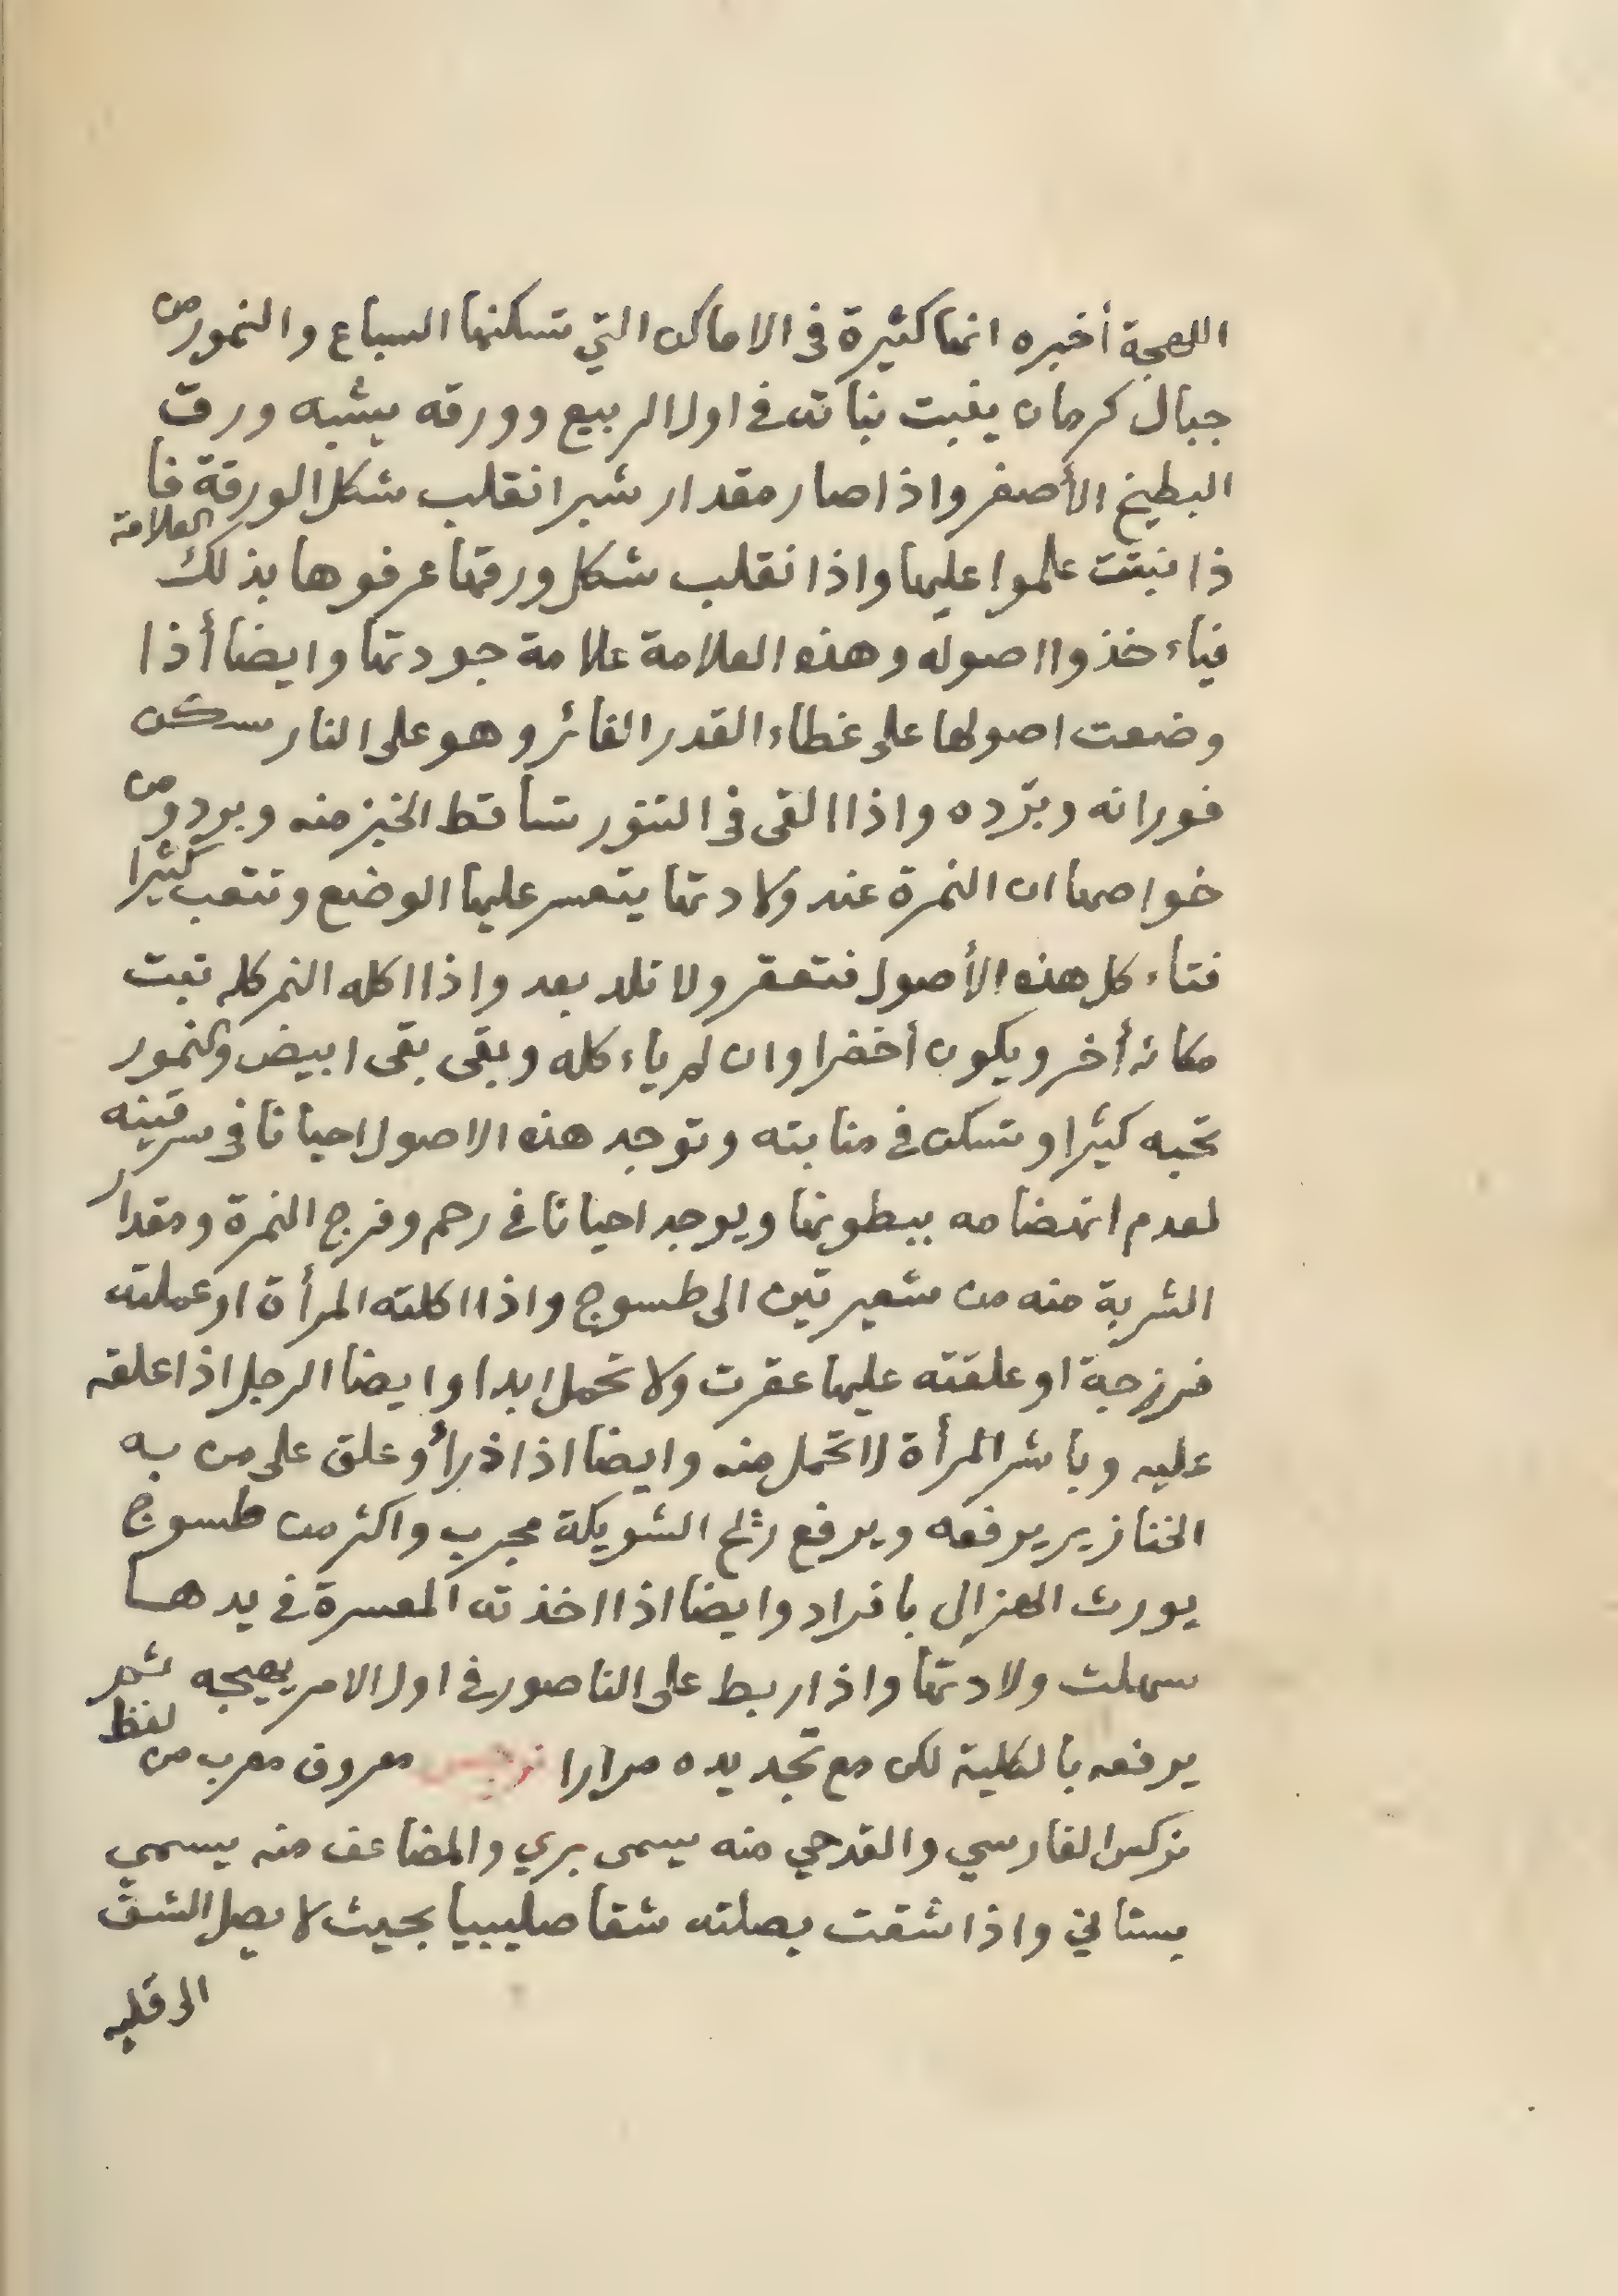 اللهجة أخبره انها كثيرة فى الاماكن التي تسكنها السباع والنمور من
جبال كرمان ينبت نباته فى اول الربيع وورقه يشبه ورق
البطيخ الأصفر واذا صار مقدار شبر انقلب شكل الورقة فا
ذا نبتت علموا عليها واذا نقلب شكل ورقتها عرفوها بذلك العلامة
فياء خذوا اصوله وهذه العلامة علامة جودتها وايضا أذا
وضعت اصولها على غطاء القدر الفائر وهو على النار سكن
فورانه وبرّده واذا القى فى التنور تساقط الخبز منه وبرد ومن
خواصها ان النمرة عند ولادتها يتعسر عليها الوضع وتتعب كثيرا
فتاء كل هذه الأصول فتعقر ولا تلد بعد واذا اكله النمر كله نبت
مكانه أخر ويكون أخضرا وان لم ياء كله وبقى بقى ابيض والنمور
تحبه كثيرا وتسكن فى منابته وتوجد هذه الاصول احيانا فى سرقينه
لعدم انهضامه ببطونها ويوجد احيانا فى رحم وفرج النمرة ومقدار
الشربة منه من شعيرتين الى طسوج واذا اكلته المرأة او عملته
فرزجة او علقته عليها عقرت ولا تحمل ابدا وايضا الرجل اذا علقه
عليه وباشر المرأة لا تحمل منه وايضا اذا ذر أو علق على من به
الخنازير يرفعه ويرفع الشويكة مجرب واكثر من طسوج
يورث الهزال بافراد وايضا اذا اخذته المعسرة فى يدها
سهلت ولادتها واذا ربط على الناصور فى اول الامر يهيجه ثم
يرفعه بالكلية لكن مع تجديده مرارا نرجس معروف معرب من لفظ
نركس الفارسي والقدحي منه يسمى بري والمضاعف منه يسمي
بستاني واذا شقت بصلته شقا صليبيا بحيث لا يصل الشق
الى قلبه